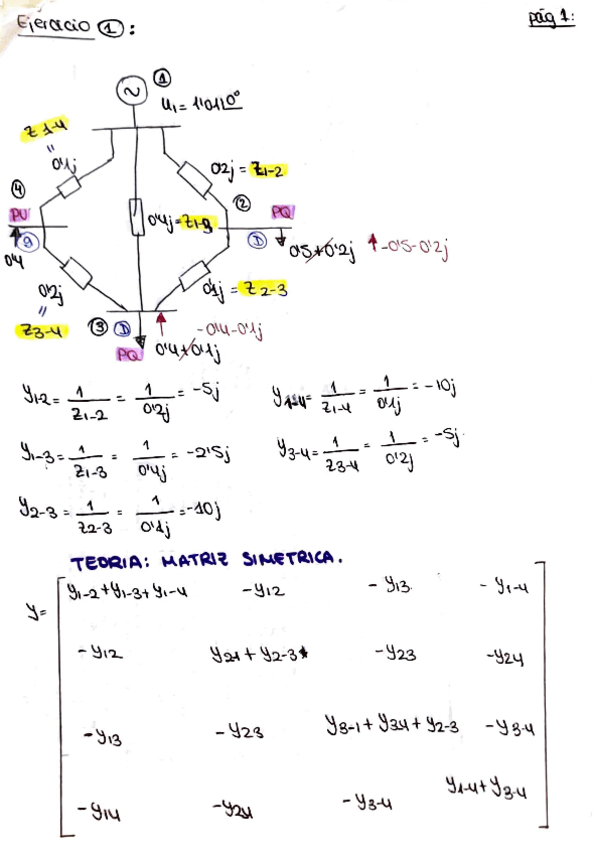 Ejercicio ①:
pág 1:
①
U₁ = 1'01∠0°
Z 1-4
=
0'1j
0'2j = Z1-2
④
②
PV
0'4j = Z1-3
PQ
g
D
0'4
0'5+0'2j
-0'5-0'2j
0'2j
0'1j = Z2-3
=
Z3-4
③
D
-0'4-0'1j
PQ
0'4+0'1j
Y1-2 = 1/Z1-2 = 1/0'2j = -5j
Y1-4 = 1/Z1-4 = 1/0'1j = -10j
Y1-3 = 1/Z1-3 = 1/0'4j = -2'5j
Y3-4 = 1/Z3-4 = 1/0'2j = -5j
Y2-3 = 1/Z2-3 = 1/0'1j = -10j
TEORIA: MATRIZ SIMETRICA.
Y=
Y1-2+Y1-3+Y1-4 -Y12 -Y13 -Y1-4
-Y12 Y21+Y2-3 -Y23 -Y24
-Y13 -Y23 Y3-1+Y34+Y2-3 -Y3-4
-Y14 -Y24 -Y3-4 Y1-4+Y3-4